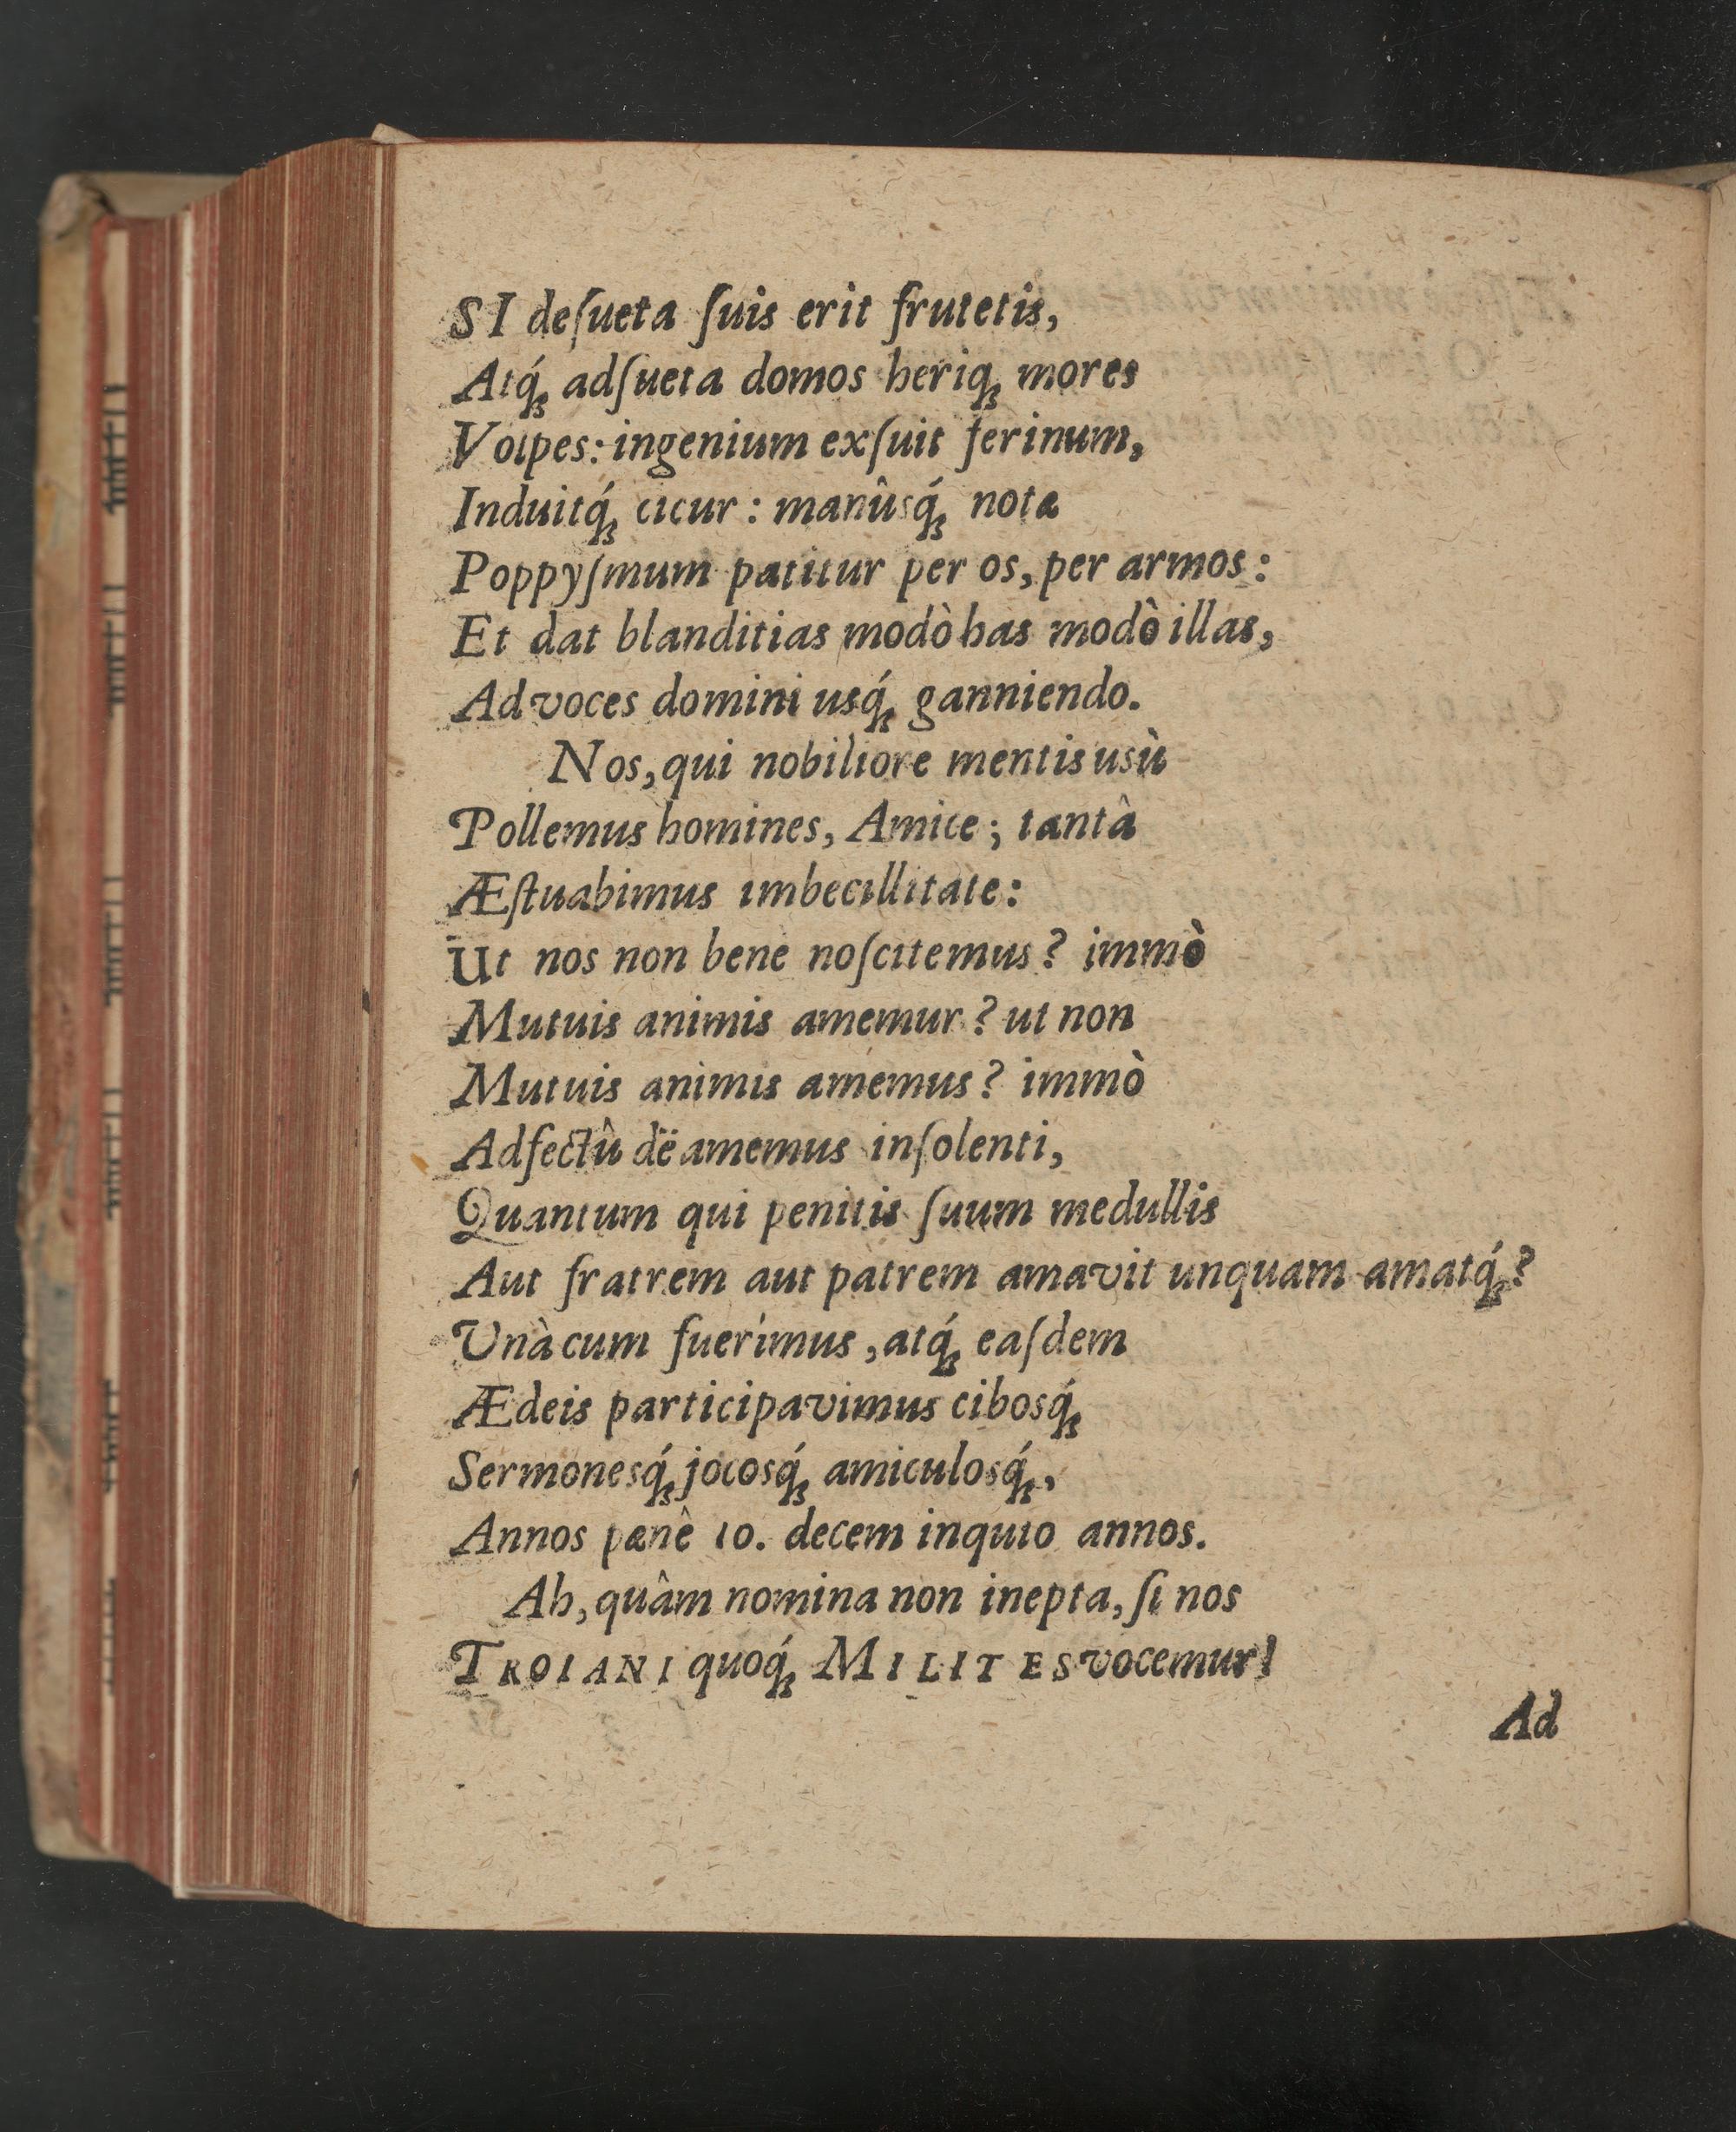 SI deſueta ſuis erit frutetis,
Atq́ꝫ adſueta domos heriqꝫ mores
Volpes: ingenium exſuit ferinum,
Induitq́ꝫ cicur: manûsq́ꝫ notæ
Poppyſmum patitur per os, per armos:
Et dat blanditias modò has modò illas,
Ad voces domini usq́ꝫ ganniendo.
Nos, qui nobiliore mentis usù
Pollemus homines, Amice; tantâ
Æſtuabimus imbecillitate:
Ut nos non bene noſcitemus? immò
Mutuis animis amemur? ut non
Mutuis animis amemus? immò
Adfectû dëamemus inſolenti,
Quantum qui penitis ſuum medullis
Aut fratrem aut patrem amavit unquam amatq́ꝫ?
Unà cum fuerimus, atq́ꝫ eaſdem
Ædeis participavimus cibosq́ꝫ
Sermonesq́ꝫ jocosq́ꝫ amiculosq́ꝫ,
Annos pænê 10. decem inquio annos.
Ah, quâm nomina non inepta, ſi nos
TROIANI quoq́ꝫ MILITES vocemur!
Ad